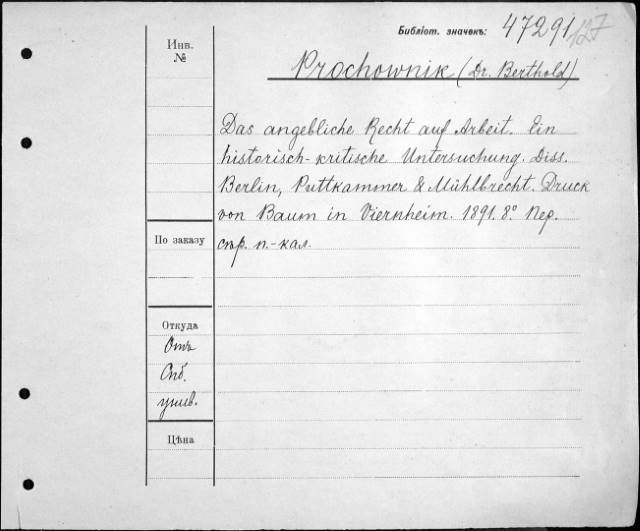 Библіот. значекъ: 47291/127
Инв.
№
Prochownik (Dr. Berthold)
Das angebliche Recht auf Arbeit. Ein
historisch-kritische Untersuchung. Diss.
Berlin, Puttkammer & Mühlbrecht. Druck
von Baum in Viernheim. 1891. 8º. Пер.
стр. п.-кал.
По заказу
Откуда
Отъ
Спб.
унив.
Цѣна